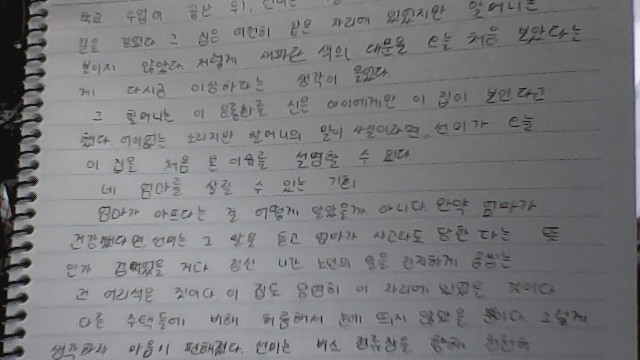 학교 수업이 끝난 뒤, 선이는
집을 찾았다. 그 집은 여전히 같은 자리에 있었지만 할머니는
보이지 않았다. 저렇게 새파란 색의 대문을 오늘 처음 보았다는
게 다시금 이상하다는 생각이 들었다
그 할머니는 이 운동화를 신은 아이에게만 이 집이 보인다고
했다. 어이없는 소리지만 할머니의 말이 사실이라면, 선이가 오늘
이 집을 처음 본 이유를 설명할 수 있다
네 엄마를 살릴 수 있는 기회
엄마가 아프다는 걸 어떻게 알았을까 아니다. 만약 엄마가
건강했다면, 선이는 그 말을 듣고 엄마가 사고라도 당한다는 뜻
인가 했을 거다 정신 나간 노인의 말을 진지하게 곱씹는
건 어리석은 짓이다 이 집도 당연히 이 자리에 있었을 것이다
다른 주택들에 비해 허름해서 눈에 띄지 않았을 뿐이다 그렇게
생각하자 마음이 편해졌다. 선이는 버스 정류장을 향해